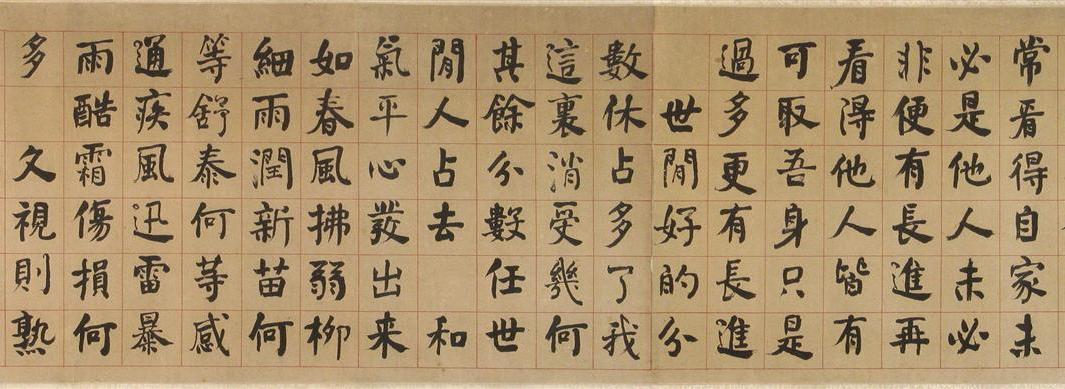 常看得自家未
必是他人未必
非便有長進再
看得他人皆有
可取吾身只是
過多更有長進
世間好的分
數休占多了我
這裏消受幾何
其餘分數任世
間人占去 和
氣平心發出来
如春風拂弱柳
細雨潤新苗何
等舒泰何等感
通疾風迅雷暴
雨酷霜傷損何
多 久視則熟